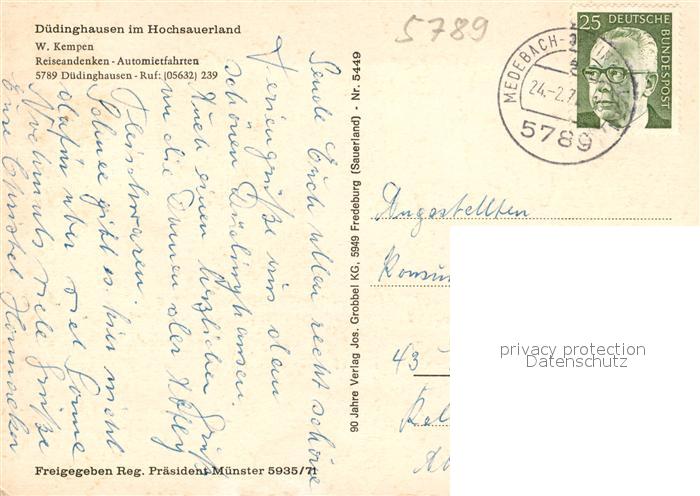 Düdinghausen im Hochsauerland
W. Kempen
Reiseandenken - Automietfahrten
5789 Düdinghausen - Ruf: (05632) 239
5789
25 DEUTSCHE BUNDESPOST
MEDEBACH
24.-2.7
5789
Sende Euch allen recht schöne
Feriengrüße aus dem
schönen Düdinghausen.
Auch einen herzlichen Gruß
an die Damen der Abtlg
Fleischwaren.
Schnee gibt es hier nicht
dafür aber viel Sonne
Nochmals viele Grüße
Eure Christel
90 Jahre Verlag Jos. Grobbel KG, 5949 Fredeburg (Sauerland) - Nr. 5449
Angestellten
Konsum
43
privacy protection
Datenschutz
Freigegeben Reg. Präsident Münster 5935/71